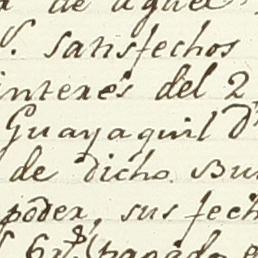 de aquel
satisfechos
interes del 2
Guayaquil
de dicho Bu
poder, sus fech
pagado